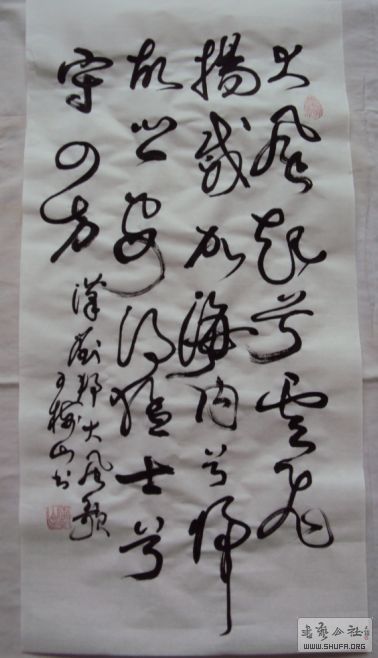 大風起兮雲飛
揚威加海内兮歸
故鄉安得猛士兮
守四方
漢劉邦大風歌
梅山书
書藝公社
WWW.SHUFA.ORG